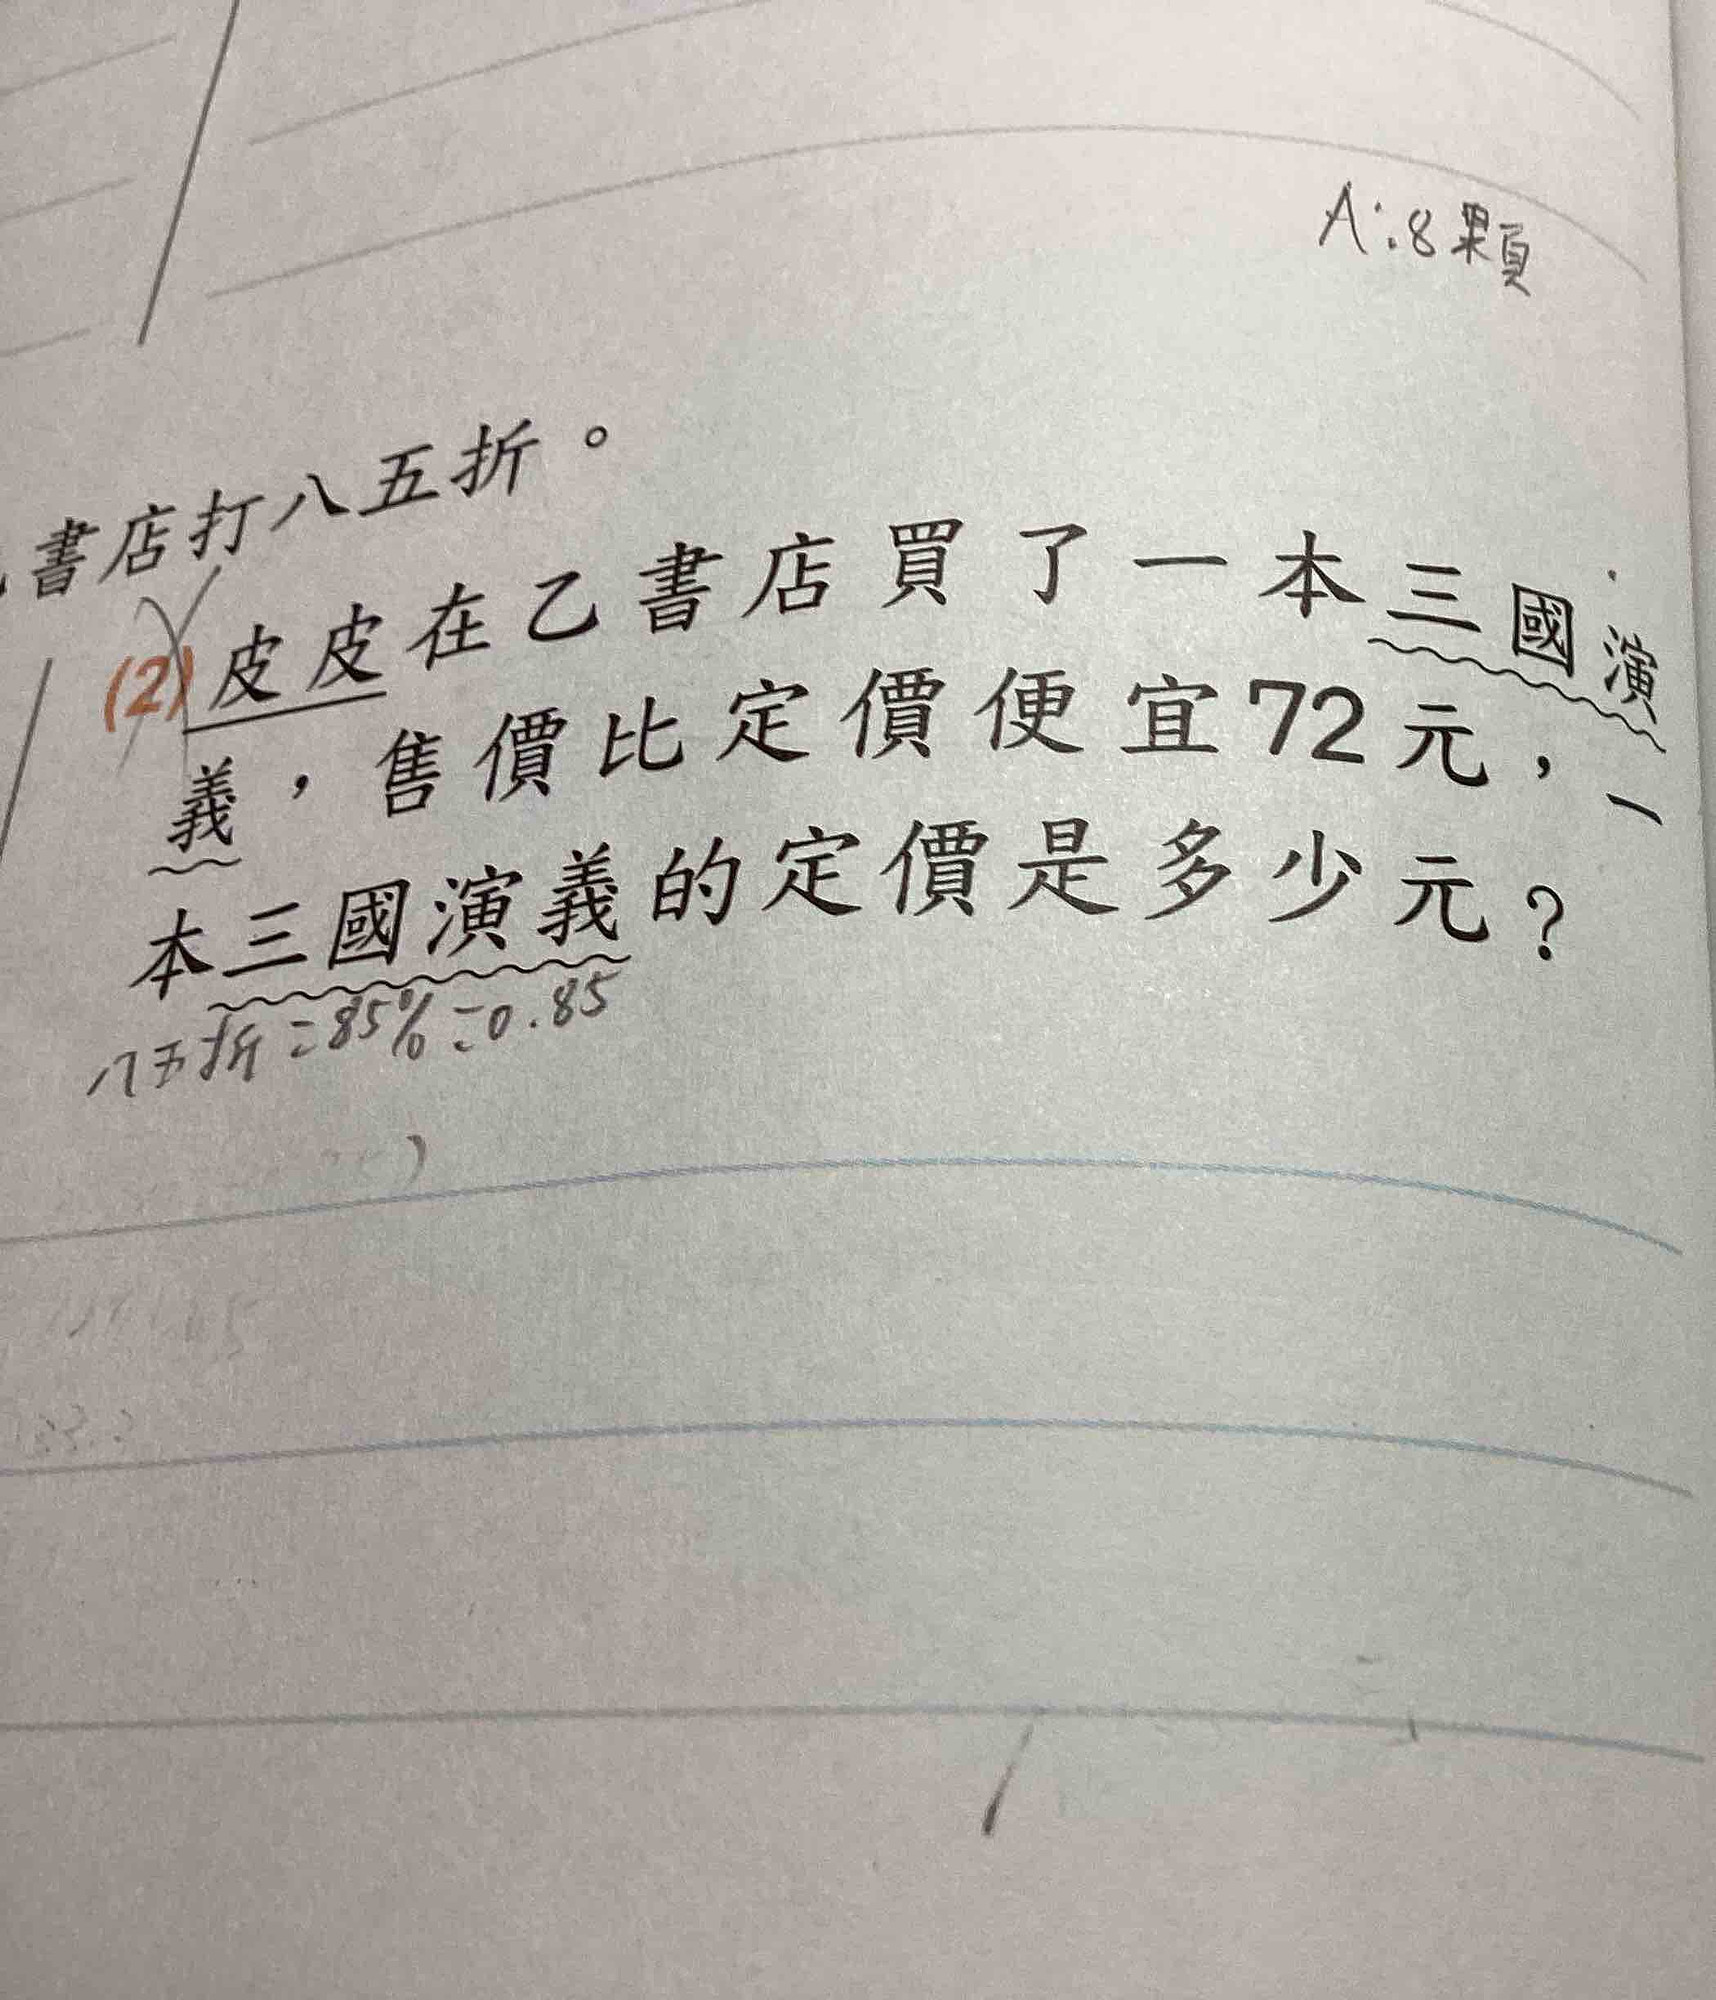 A:8顆
書店打八五折。
(2)皮皮在乙書店買了一本三國演
義，售價比定價便宜72元，一
本三國演義的定價是多少元？
八五折=85%=0.85